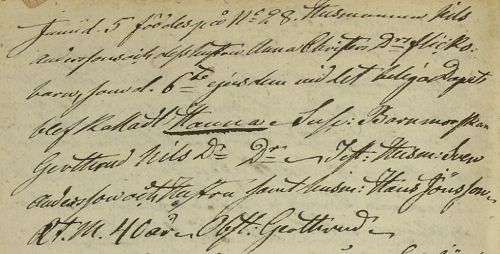 Junii d. 5 föddes på N:o 28. Husmannen Nils
Anderssons och dess hustru Anna Christina D:r flicko-
barn, som d. 6:te ejusdem vid det heliga Dopet
blef kalladt Hanna. Susc: Barnmorskan
Gerthrud Nils D:r Test: Husm: Sven
Andersson och Hustru samt husm: Hans Jönsson.
Æt. M. 40 år. Obst: Gerthrud